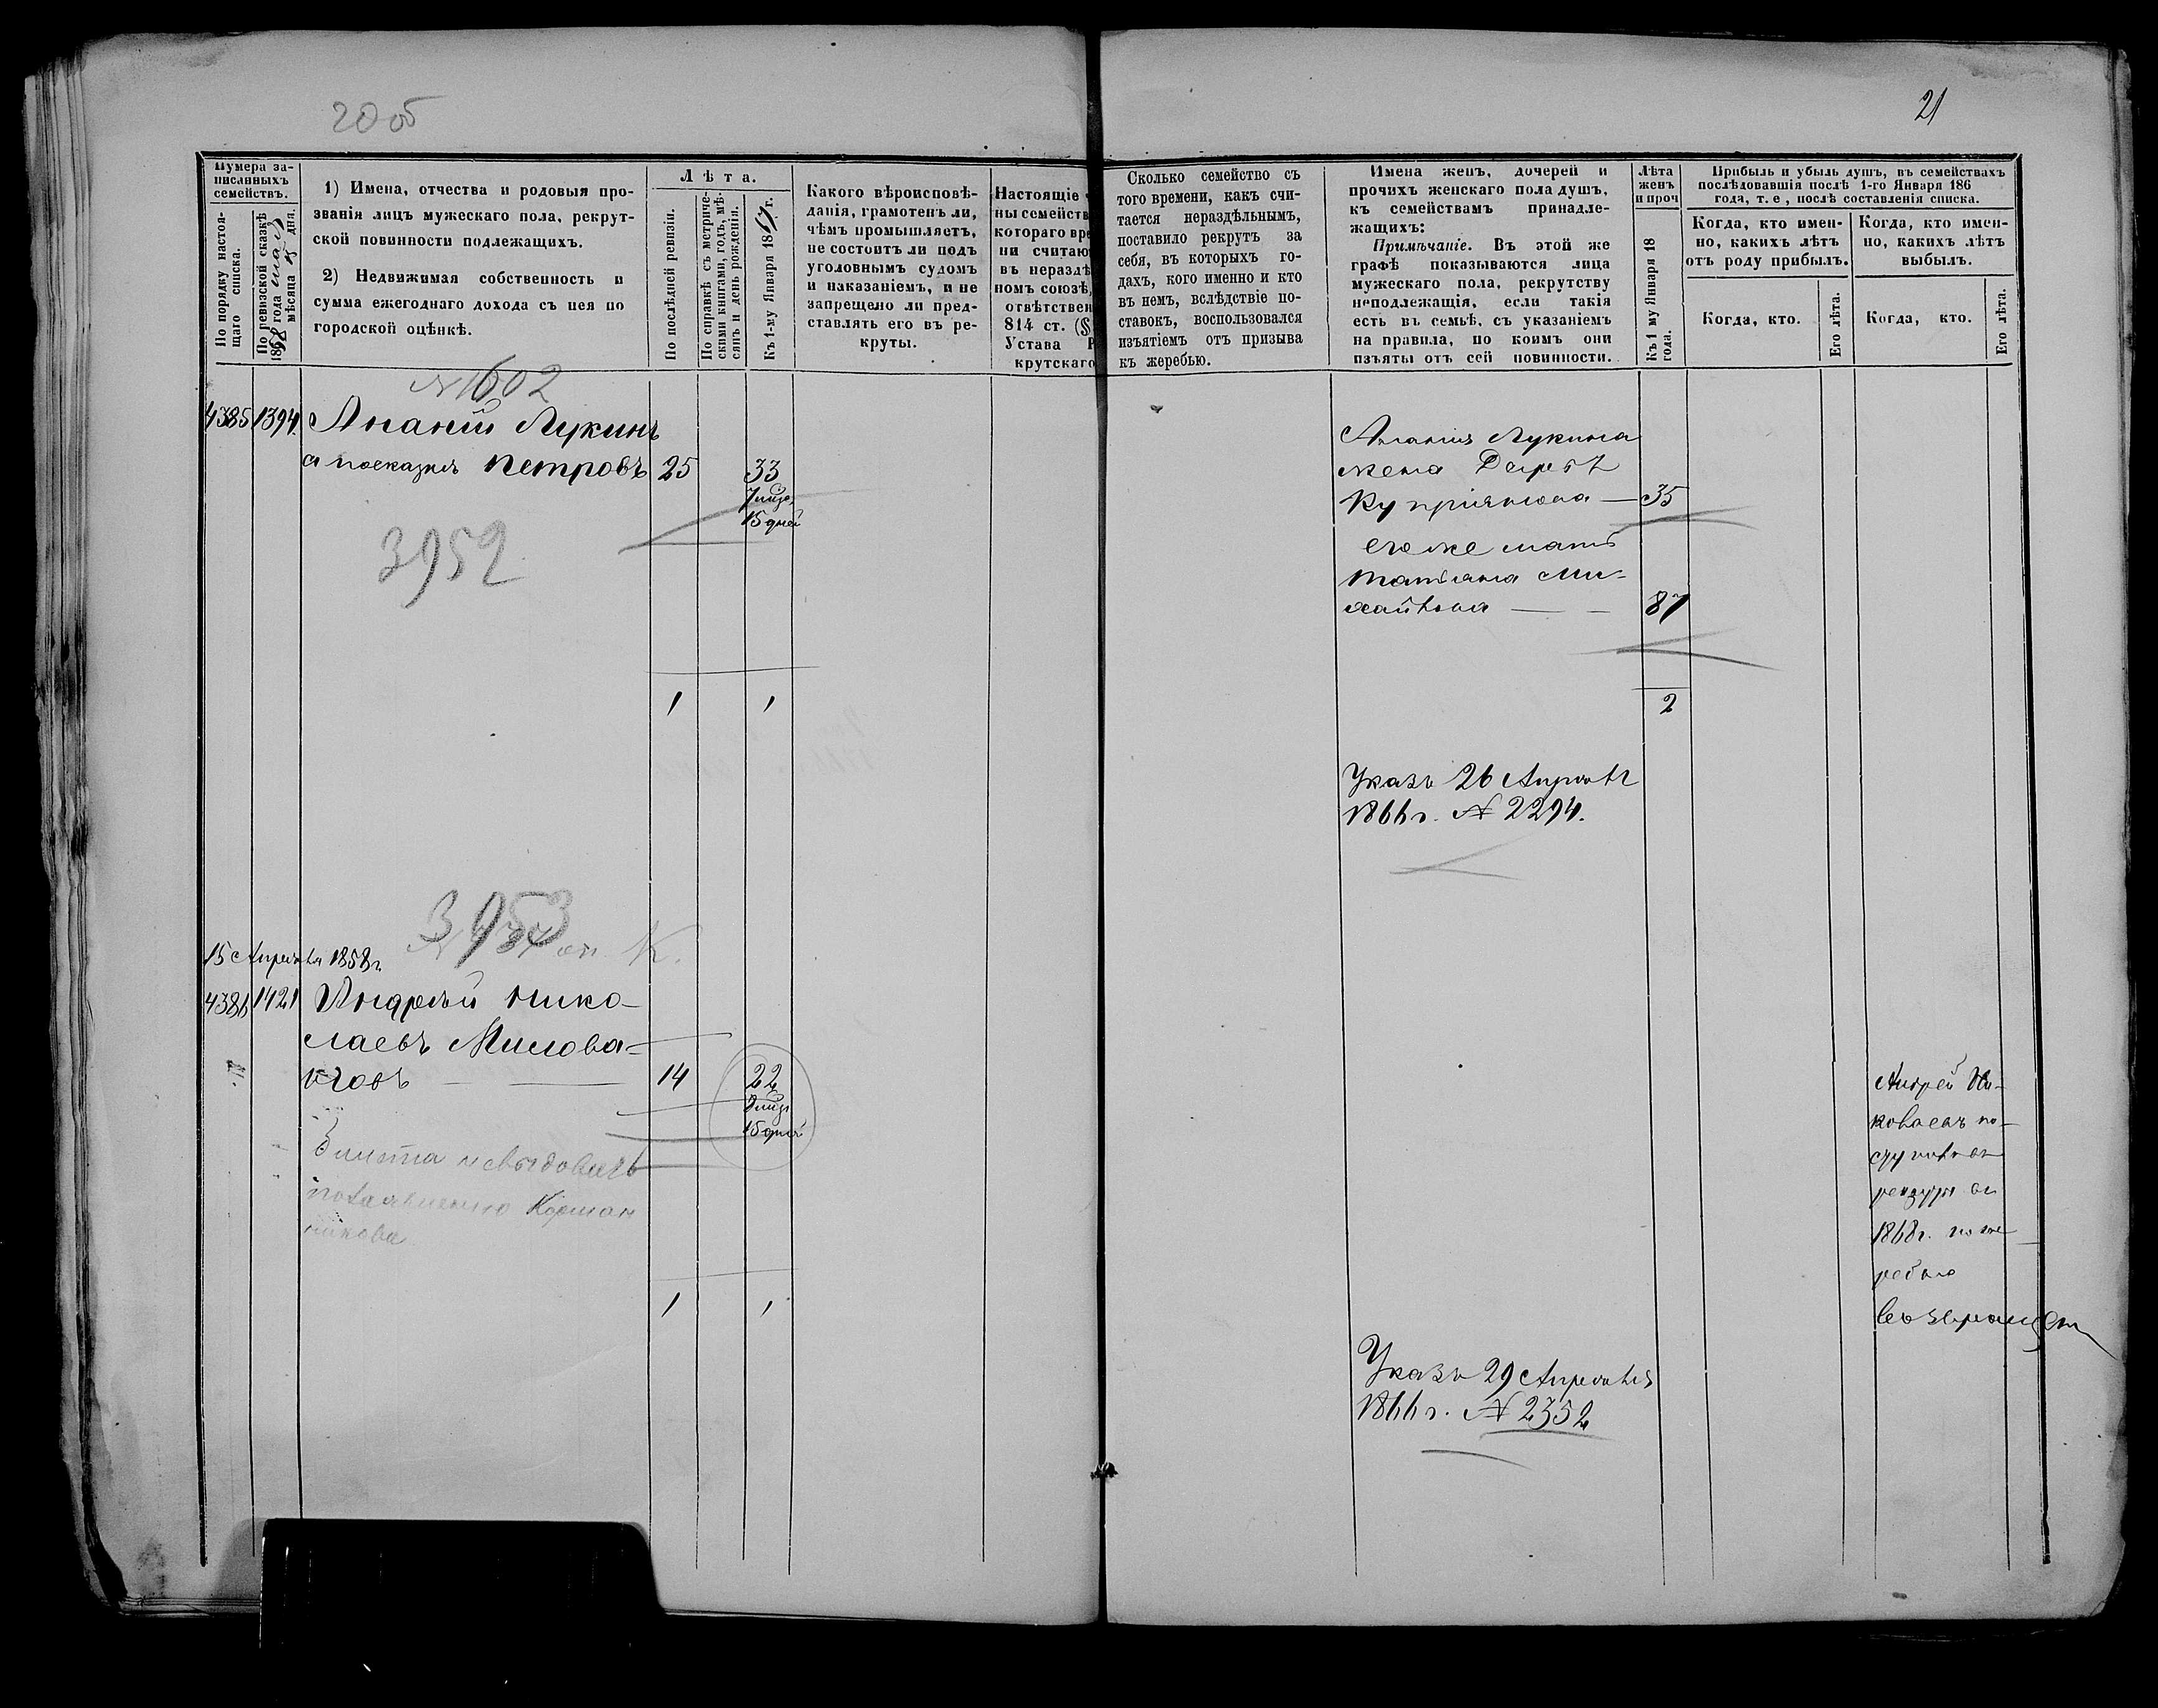 20 об
21
Нумера за-
писанныхъ
семействъ.
По порядку настоя-
щаго списка.
По ревизской сказкѣ
1858 года мая
мѣсяца дня.
1) Имена, отчества и родовыя про-
званія лицъ мужескаго пола, рекрут-
ской повинности подлежащихъ.
2) Недвижимая собственность и
сумма ежегоднаго дохода съ нея по
городской оцѣнкѣ.
Лѣта.
По послѣдней ревизіи.
По справкѣ съ метриче-
скими книгами, годъ, мѣ-
сяцъ и день рожденія.
Къ 1-му Января 1867 г.
Какого вѣроисповѣ-
данія, грамотенъ ли,
чѣмъ промышляетъ,
не состоитъ ли подъ
уголовнымъ судомъ
и наказаніемъ, и не
запрещено ли пред-
ставлять его въ ре-
круты.
Настоящіе
ны семейств
котораго вре
ни считаю
въ нераздѣ
номъ союзѣ,
отвѣтствен
814 ст. (§
Устава Р
крутскаго
Сколько семейство съ
того времени, какъ счи-
тается нераздѣльнымъ,
поставило рекрутъ за
себя, въ которыхъ го-
дахъ, кого именно и кто
въ немъ, вслѣдствіе по-
ставокъ, воспользовался
изъятіемъ отъ призыва
къ жеребью.
Имена женъ, дочерей и
прочихъ женскаго пола душъ,
къ семействамъ принадле-
жащихъ:
Примѣчаніе. Въ этой же
графѣ показываются лица
мужескаго пола, рекрутству
неподлежащія, если такія
есть въ семьѣ, съ указаніемъ
на правила, по коимъ они
изъяты отъ сей повинности.
Лѣта
женъ
и проч
Къ 1 му Января 18
года.
Прибыль и убыль душъ, въ семействахъ
послѣдовавшія послѣ 1-го Января 186
года, т. е, послѣ составленія списка.
Когда, кто имен-
но, какихъ лѣтъ
отъ роду прибылъ.
Когда, кто.
Его лѣта.
Когда, кто имен-
но, какихъ лѣтъ
выбылъ.
Когда, кто.
Его лѣта.
№ 1602
4385 1394. Ананій Лукинъ
а по сказкѣ Петровъ 25 33
7 мцъ
15 дней
3952
1 1
Ананія Лукина
жена Дарья
Купріянова — 35
его же мать
Татьяна Ми-
хайлова — 87
2
Указъ 26 Апрѣля
1866 г. № 2294.
3953
15 Апрѣля 1858 г.
4386 1421 Андрей Нико-
лаевъ Милова-
новъ 14 22
15 дней
1 1
Андрей Ни-
колаевъ по-
ступилъ въ
рекруты въ
1868 г. по же-
ребью
Возвращенъ
Указъ 29 Апрѣля
1866 г. № 2352